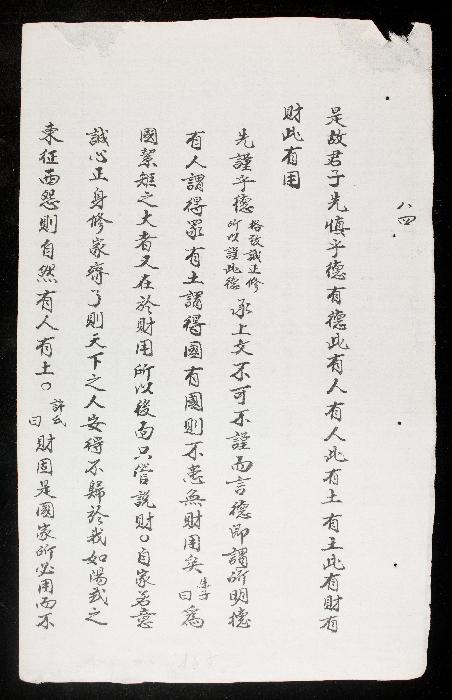 八四
是故君子先慎乎德有德此有人有人此有土有土此有財有
財此有用
先謹乎德格致誠正修所以謹此德承上文不可不謹而言德即謂所明德
有人謂得眾有土謂得國有國則不患無財用矣朱子曰為
國絜矩之大者又在於財用所以後面只管說財〇自家若意
誠心正身修家齊了則天下之人安得不歸於我如湯武之
東征西怨則自然有人有土〇許氏曰財固是國家所必用而不